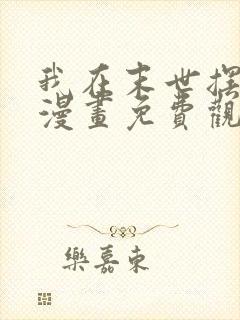 我在末世摆
漫畫免費觀
樂嘉東